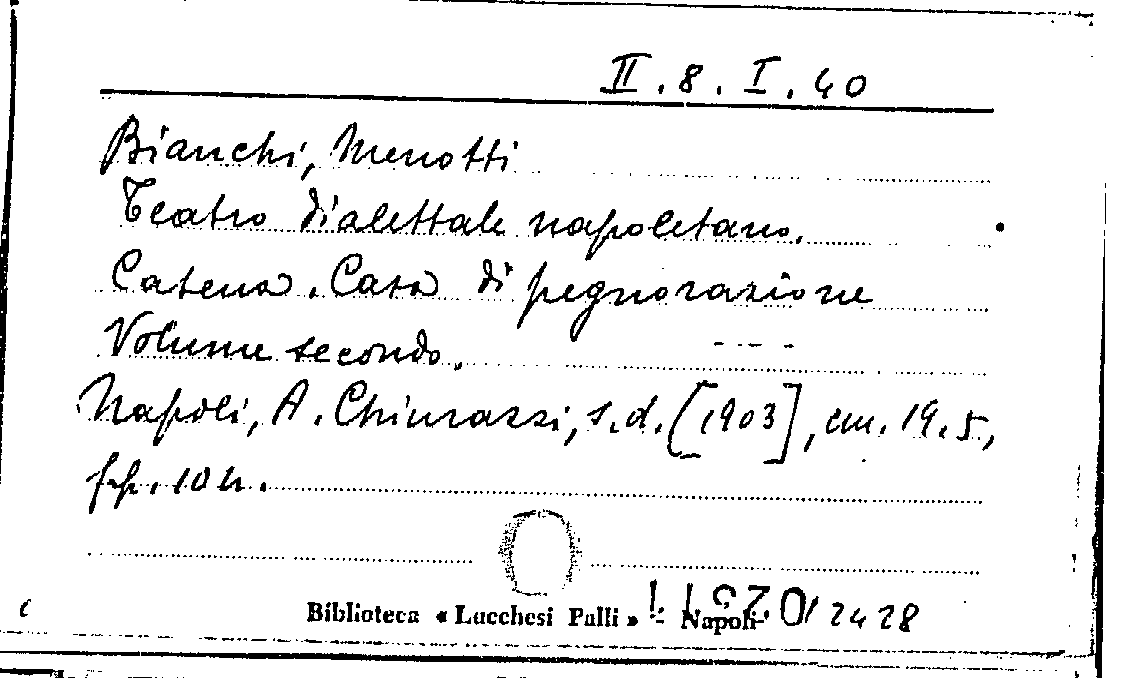 II.8.I.40
Bianchi, Menotti
Teatro dialettale napoletano.
Catena. Casa di pegnorazione
Volume secondo. - - -
Napoli, A. Chiurazzi, s.d. [1903], cm. 19.5,
pp. 104.
Biblioteca « Lucchesi Palli » - Napoli
/2428